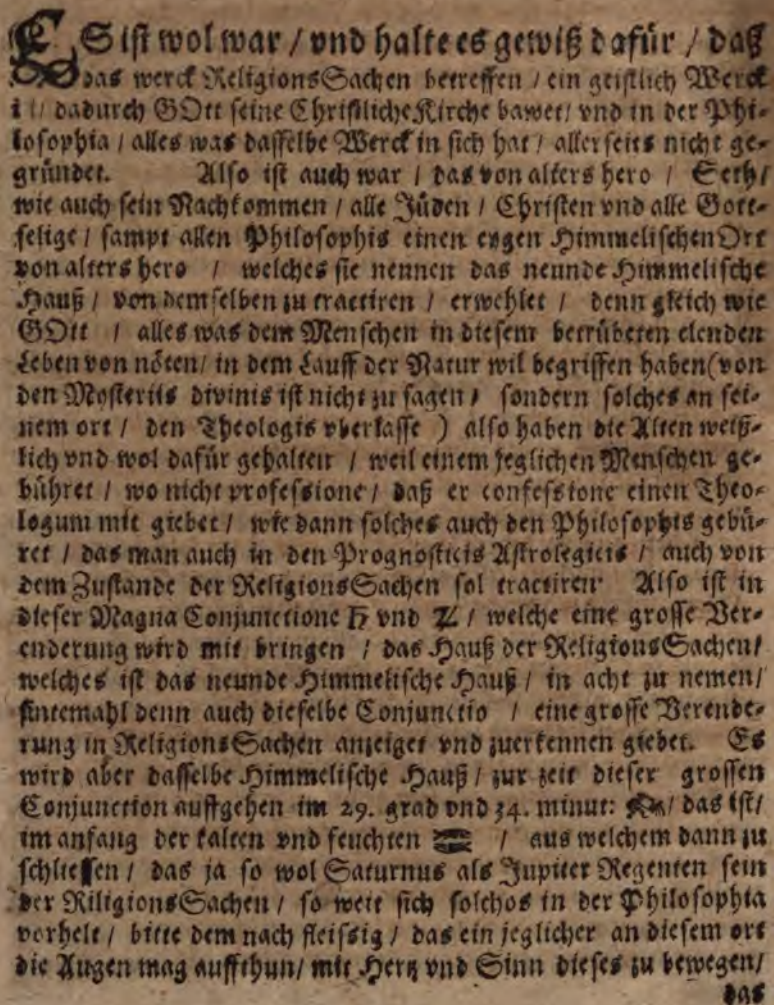 ES ist wol war / vnd halte es gewiß dafür / daß
das werck ReligionsSachen betreffen / ein geistlich Werck
ist / dadurch GOtt seine Christliche Kirche bawet / vnd in der Phi-
losophia / alles was dasselbe Werck in sich hat / allerseits nicht ge-
gründet. Also ist auch war / das von alters hero / Seth /
wie auch sein Nachkommen / alle Jüden / Christen vnd alle Gott-
selige / sampt allen Philosophis einen eygen Himmelischen Ort
von alters hero / welches sie nennen das neunde Himmelische
Hauß / von demselben zu tractiren / erwehlet / denn gleich wie
GOtt / alles was dem Menschen in diesem betrübeten elenden
Leben von nöten / in dem Lauff der Natur wil begriffen haben (von
den Mysteriis divinis ist nicht zu sagen / sondern solches an sei-
nem ort / den Theologis vberlasse ) also haben die Alten weiß-
lich vnd wol dafür gehalten / weil einem jeglichen Menschen ge-
bühret / wo nicht professione / daß er confessione einen Theo-
logum mit giebet / wie dann solches auch den Philosophis gebü-
ret / das man auch in den Prognosticis Astrologicis / auch von
dem Zustande der ReligionsSachen sol tractiren Also ist in
dieser Magna Conjunctione ♄ vnd ♃ / welche eine grosse Ver-
enderung wird mit bringen / das Hauß der ReligionsSachen /
welches ist das neunde Himmelische Hauß / in acht zu nemen /
sintemahl denn auch dieselbe Conjunctio / eine grosse Verende-
rung in ReligionsSachen anzeiget vnd zuerkennen giebet. Es
wird aber dasselbe Himmelische Hauß / zur zeit dieser grossen
Conjunction auffgehen im 29. grad vnd 34. minut: / das ist /
im anfang der kalten vnd feuchten / aus welchem dann zu
schliessen / das ja so wol Saturnus als Jupiter Regenten sein
der RiligionsSachen / so weit sich solchos in der Philosophia
vorhelt / bitte dem nach fleissig / das ein jeglicher an diesem ort
die Augen mag auffthun / mit Hertz vnd Sinn dieses zu bewegen /
das